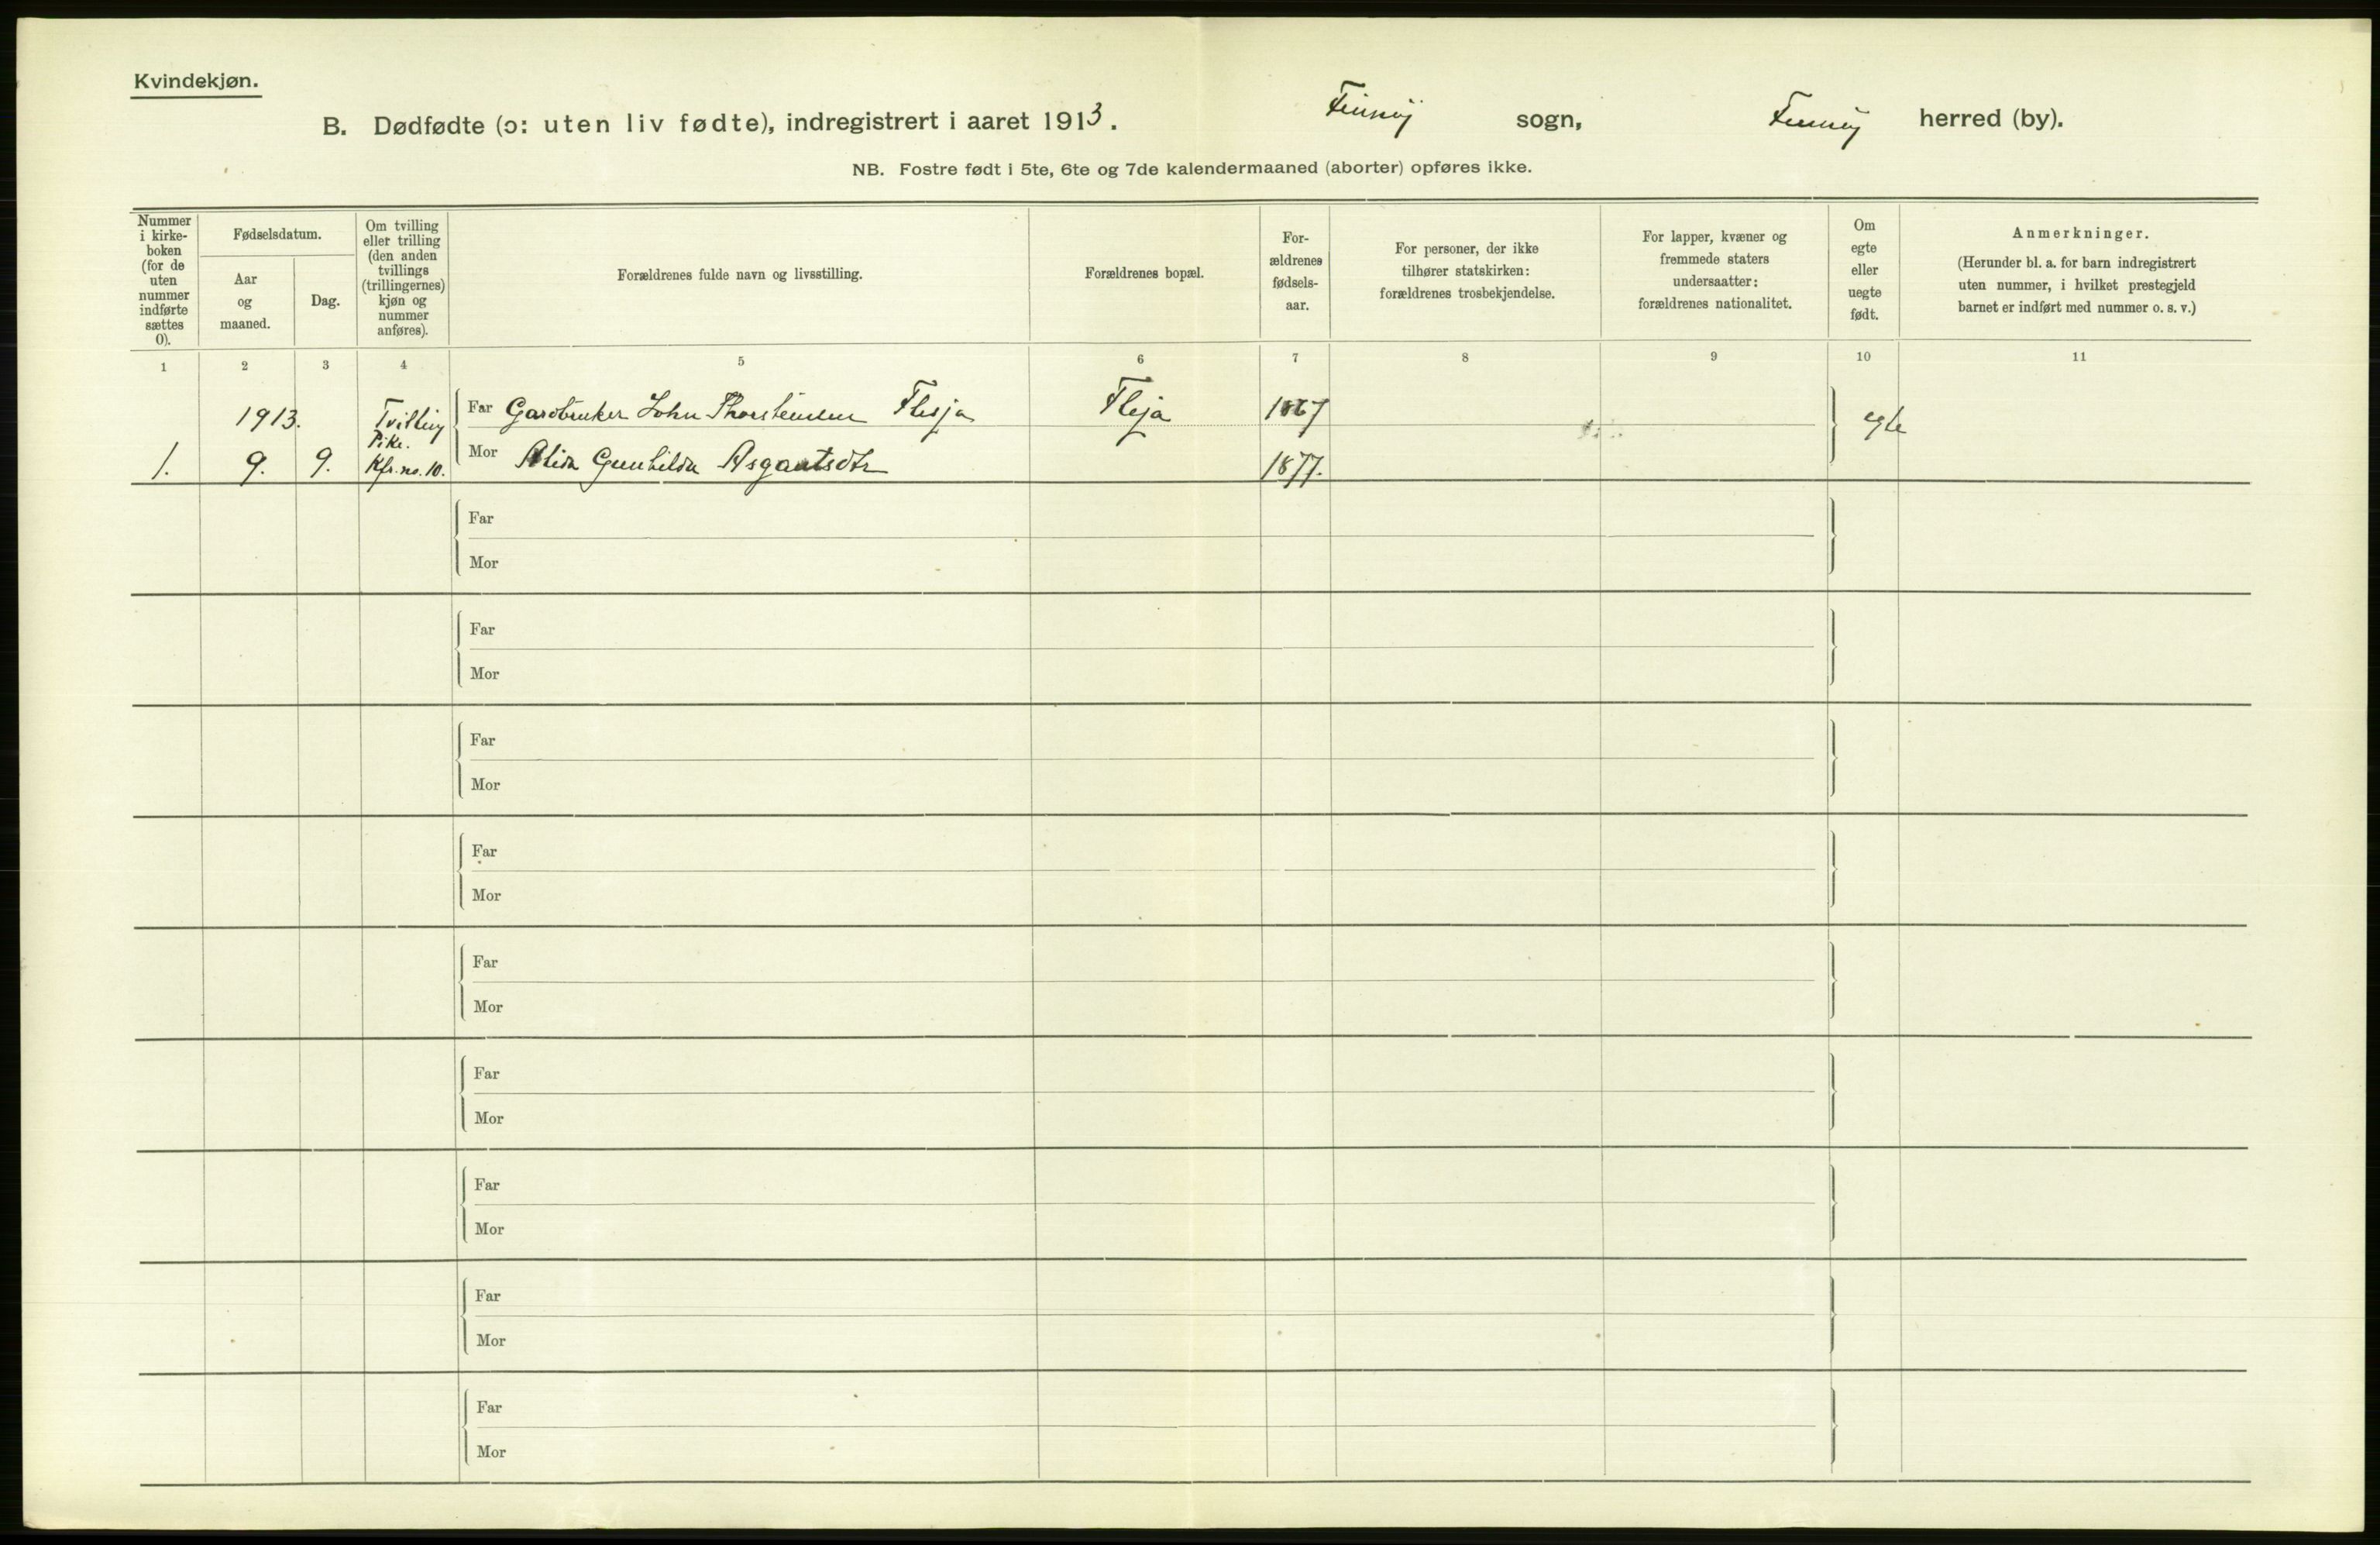 Kvindekjøn.
B. Dødfødte (ɔ: uten liv fødte), indregistrert i aaret 1913. Finnøy sogn, Finnøy herred (by).
NB. Fostre født i 5te, 6te og 7de kalendermaaned (aborter) opføres ikke.
Nummer
i kirke-
boken
(for de
uten
nummer
indførte
sættes
0).
Fødselsdatum.
Aar
og
maaned.
Dag.
Om tvilling
eller trilling
(den anden
tvillings
(trillingernes)
kjøn og
nummer
anføres).
Forældrenes fulde navn og livsstilling.
Forældrenes bopæl.
For-
ældrenes
fødsels-
aar.
For personer, der ikke
tilhører statskirken:
forældrenes trosbekjendelse.
For lapper, kvæner og
fremmede staters
undersaatter:
forældrenes nationalitet.
Om
egte
eller
uegte
født.
Anmerkninger.
(Herunder bl. a. for barn indregistrert
uten nummer, i hvilket prestegjeld
barnet er indført med nummer o. s. v.)
1 2 3 4 5 6 7 8 9 10 11
1.
1913.
9.
9.
Tvilling
Pike.
Kfr. no. 10.
Far Gardbruker John Thorsteinsen Flesja
Mor Alida Gunhilda Asgautsdtr
Flesja
1867
1877.
egte
Far
Mor
Far
Mor
Far
Mor
Far
Mor
Far
Mor
Far
Mor
Far
Mor
Far
Mor
Far
Mor